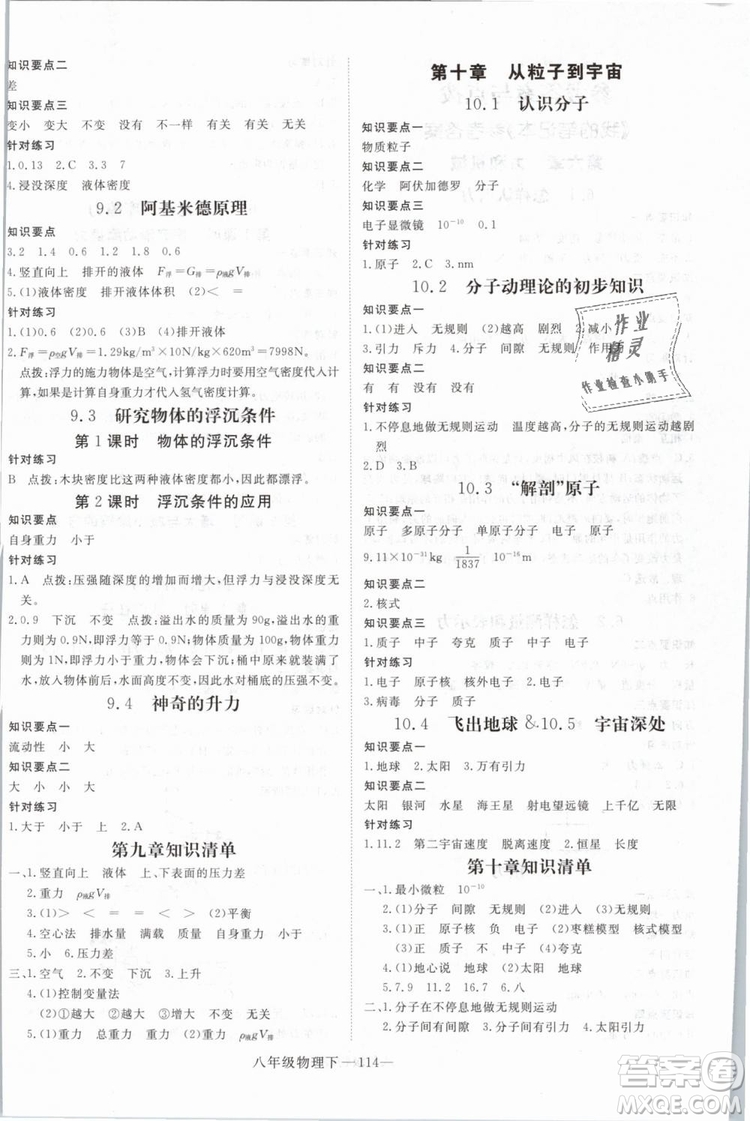 知识要点二
差
知识要点三
变小 变大 不变 没有 不一样 有关 无关
针对练习
1.0.13 2.C 3.3 7
4.浸没深度 液体密度
9.2 阿基米德原理
知识要点
3.2 1.4 0.6 1.2 0.6 1.8
4.竖直向上 排开的液体 F浮=G排=ρ液gV排
5.(1)液体密度 排开的液体体积 (2)< =
针对练习
1.(1)0.6 (3)B (4)排开液体
2.F浮=ρ空gV排=1.29kg/m³×10N/kg×620m³=7998N。
点拨:浮力的施力物体是空气,计算浮力时空气密度代入计
算,如果是计算自身重力才代入氢气密度计算。
9.3 研究物体的浮沉条件
第1课时 物体的浮沉条件
针对练习
B 点拨:木块密度比这两种液体密度都小,因此都漂浮。
第2课时 浮沉条件的应用
知识要点
自身重力 小于
针对练习
1.A 点拨:压强随深度的增大而增大,但浮力与深度无关。
2.0.9 下沉 不变 点拨:溢出水的质量为90g,溢出水的
重力则为0.9N,即浮力为0.9N;物体质量为100g,物体重
力为1N,重力大于浮力,物体下沉;桶中原来装满水,放
入物体后,水面高度不变,因此水对桶底的压强不变。
9.4 神奇的升力
知识要点一
流动性 小 大
知识要点二
大 小 小 大
针对练习
1.大于 小于 上 2.A
第九章知识清单
一、1.竖直向上 液体 上、下表面的压力差
2.重力 ρ液gV排
3.(1)> < = = > < (2)平衡
4.空心法 排水量 满载 质量 自身重力 小于
5.小 6.压力差
二、1.空气 2.不变 下沉 3.大 上升
4.(1)控制变量法
(2)①越大 ②越大 增大 不变 无关
5.(1)重力 总重力 重力 (2)重力 ρ液gV排
八年级物理下 —114—
第十章 从粒子到宇宙
10.1 认识分子
知识要点一
物质粒子
知识要点二
化学 阿伏加德罗 分子
知识要点三
电子显微镜 10⁻¹⁰ 0.1
针对练习
1.原子 2.C 3.nm
10.2 分子动理论的初步知识
知识要点一
1.(1)进入 无规则 (2)越高 剧烈 2.减小
3.引力 斥力 4.(1)分子 间隙 无规则 (2)作用力
知识要点二
有 有 没有 没有
针对练习
1.不停息地做无规则运动 温度越高,分子的无规则运动越剧
烈
2.D 3.B
10.3 “解剖”原子
知识要点一
原子 多原子分子 单原子分子 电子 原子
9.11×10⁻³¹kg 1/1837 10⁻¹⁶m
知识要点二
2.核式
知识要点三
1.质子 中子 夸克 质子 中子 电子
针对练习
1.电子 原子核 核外电子 2.电子
3.病毒 分子 质子
10.4 飞出地球 &10.5 宇宙深处
知识要点一
1.地球 2.太阳 3.万有引力
知识要点二
太阳 银河 水星 海王星 射电望远镜 上千亿 无限
针对练习
1.11.2 第二宇宙速度 脱离速度 2.恒星 长度
第十章知识清单
一、1.最小微粒 10⁻¹⁰
2.(1)分子 间隙 无规则 (2)进入 (3)无规则
3.(1)正 原子核 负 电子 (2)枣糕模型 核式模型
(3)正 质子 不 中子 (4)夸克
4.(1)地心说 地球 (2)太阳 太阳
5.7.9 11.2 16.7 6.八
二、1.分子在不停息地做无规则运动
2.分子间有间隙 3.分子间有间隙 4.分子间有引力
作业精灵
作业检查小助手
答案圈
MXQE.COM